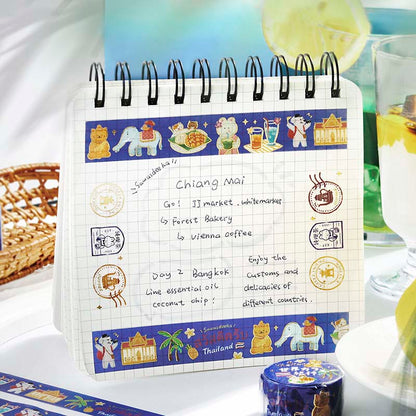 Sawadeeka
Chiang Mai
Go! JJ market, whitemarket
↳ Forest Bakery
↳ Vienna coffee
Day 2 Bangkok
Line essential oil
coconut chip!
Enjoy the
customs and
delicacies of
different countries.
Sawadeeka
Thailand